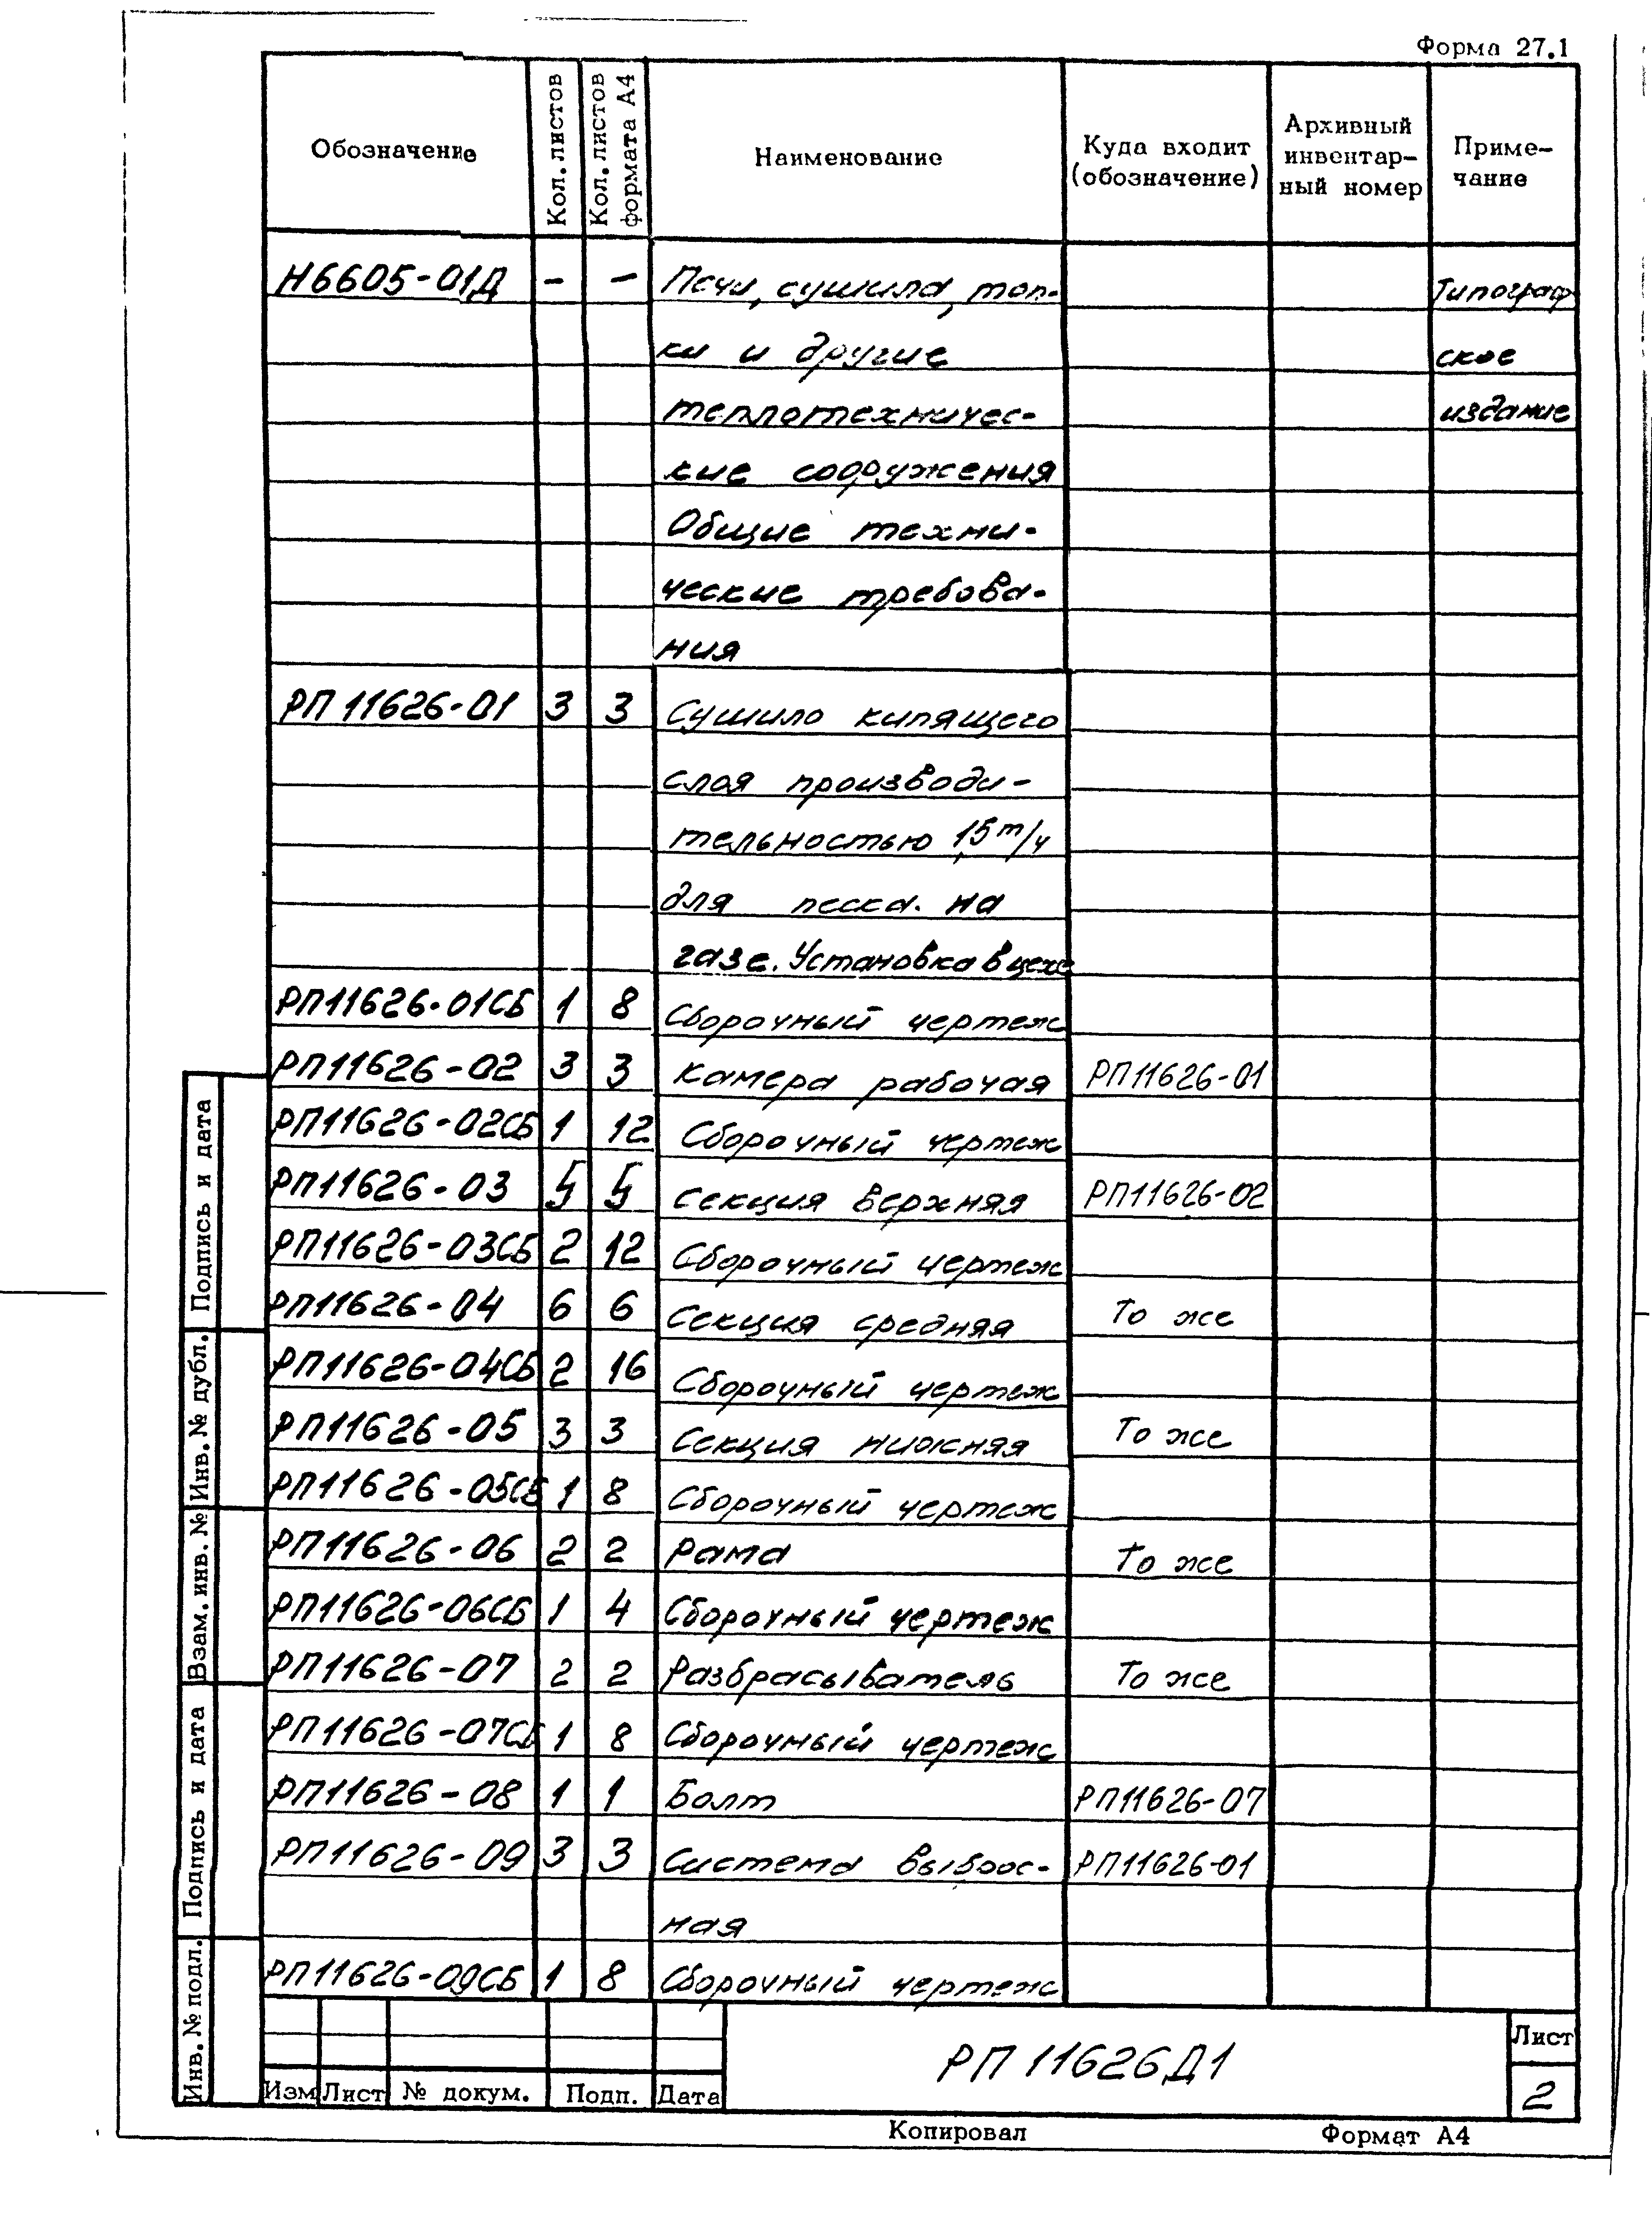 Форма 27.1
Обозначение Кол. листов Кол. листов формата А4 Наименование Куда входит (обозначение) Архивный инвентар- ный номер Приме- чание
Н6605-01Д - - Печи, сушила, топ- Типограф
ки и другие ское
теплотехничес- издание
кие сооружения
Общие техни-
ческие требова-
ния
РП 11626-01 3 3 Сушило кипящего
слоя производи-
тельностью 15 т/ч
для песка. на
газе. Установка в цехе
РП11626-01СБ 1 8 Сборочный чертеж
РП11626-02 3 3 Камера рабочая РП11626-01
РП11626-02СБ 1 12 Сборочный чертеж
РП11626-03 5 5 Секция верхняя РП11626-02
РП11626-03СБ 2 12 Сборочный чертеж
РП11626-04 6 6 Секция средняя То же
РП11626-04СБ 2 16 Сборочный чертеж
РП11626-05 3 3 Секция нижняя То же
РП11626-05СБ 1 8 Сборочный чертеж
РП11626-06 2 2 Рама То же
РП11626-06СБ 1 4 Сборочный чертеж
РП11626-07 2 2 Разбрасыватель То же
РП11626-07СБ 1 8 Сборочный чертеж
РП11626-08 1 1 Болт РП11626-07
РП11626-09 3 3 Система выброс- РП11626-01
ная
РП11626-09СБ 1 8 Сборочный чертеж
Инв. № подл. Подпись и дата Взам. инв. № Инв. № дубл. Подпись и дата
Изм Лист № докум. Подп. Дата
РП 11626Д1
Лист
2
Копировал Формат А4